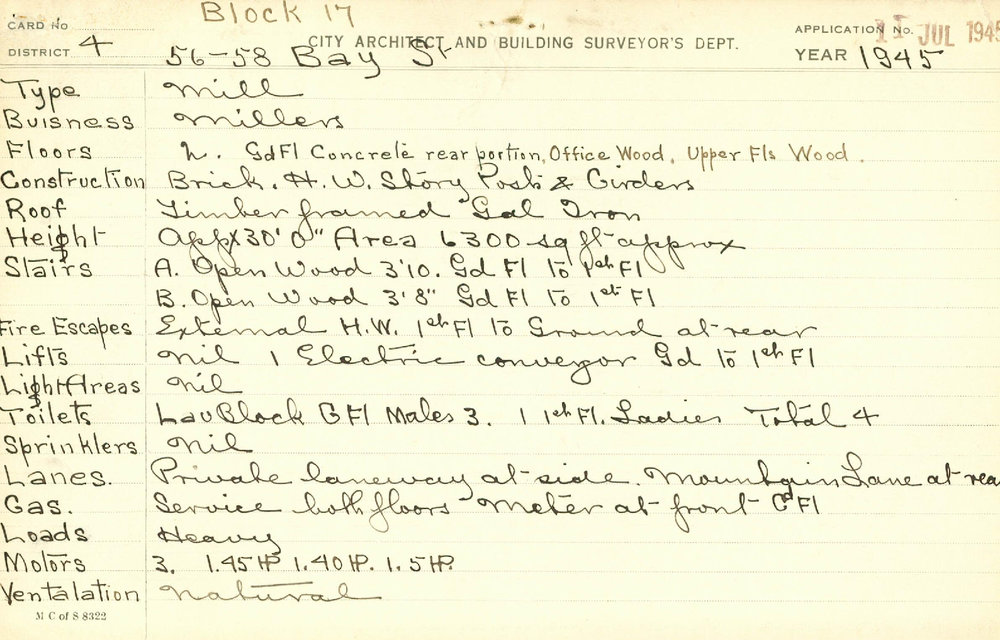 Block 17
CARD No
CITY ARCHITECT AND BUILDING SURVEYOR'S DEPT.
APPLICATION No. 11 JUL 1945
DISTRICT 4
56-58 Bay St
YEAR 1945
Type Mill
Buisness Millers
Floors 2. Gd Fl Concrete rear portion, Office Wood. Upper Fls Wood.
Construction Brick. H.W. Story Posts & Girders
Roof Timber framed Gal Iron
Height Appx 30' 0" Area 6300 sq ft approx
Stairs A. Open Wood 3'10. Gd Fl to 1st Fl
B. Open Wood 3'8" Gd Fl to 1st Fl
Fire Escapes External H.W. 1st Fl to Ground at rear
Lifts Nil 1 Electric conveyor Gd to 1st Fl
Light Areas Nil
Toilets Lav Block G Fl Males 3. 1 1st Fl. Ladies Total 4
Sprinklers Nil
Lanes. Private laneway at side. Mountain Lane at rea
Gas. Service both floors Meter at front G Fl
Loads Heavy
Motors 3. 1.45 HP 1.40 HP. 1.5 HP.
Ventalation Natural
M C of S 8322